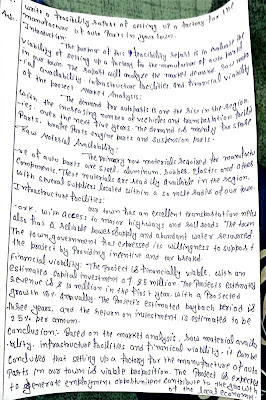 write a feasibility report at setting up a factory for the
Ans. manufacture of auto parts in your town.
Introduction:
The purpose of this feasibility report is to evaluate the
viability of setting up a factory for the manufacture of auto parts
in our town. The report will analyze the market demand, raw mate
rial availability infrastructure facilities and financial viability
of the project
Market Analysis:
The demand for autoparts is on the rise in the region.
with the increasing number of vehicles and transportation facilit
ies. over the next five years. The demand is mainly for spare
Parts, engine parts and suspension parts.
Raw Material Availability:
The primary raw materials required for manufactu
re of auto parts are steel, aluminum, rubber, plastic and other
components. These materials are readily available in the region,
with several suppliers located within a 50 mile radius of our town.
Infrastructure facilities:
our town has an excellent transportation netw
ork. with access to major highways and railroads. The town
also has a reliable power supply and abundant water resources.
The town government has expressed its willingness to support
the project by providing incentive and tax breaks.
Financial viability: The project is financially viable, with an
estimated capital investment of $ 5 million. The project's estimated
revenue is $ 10 million in the first year, with a projected
growth 10% annually. The project's estimated payback period is
three years, and the return on investment is estimated to be
25% per annum.
Conclusion: Based on the market analysis, raw material availa
bility, infrastructure facilities and financial viability, it can be
concluded that setting up a factory for the manufacture of auto
parts in our town is viable proposition. The project is expected
to generate employment opportunities contribute to the growth
of the local economy.